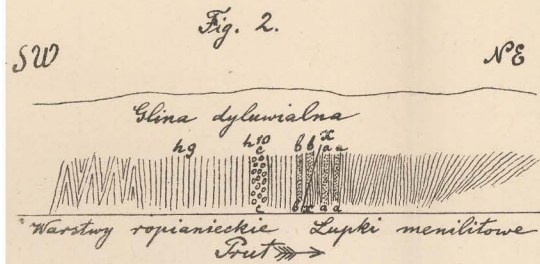 Fig. 2.
SW NE
Glina dyluwialna
h9 h10 x
c b b a a
c b x a a
Warstwy ropianieckie Łupki menilitowe
Prut